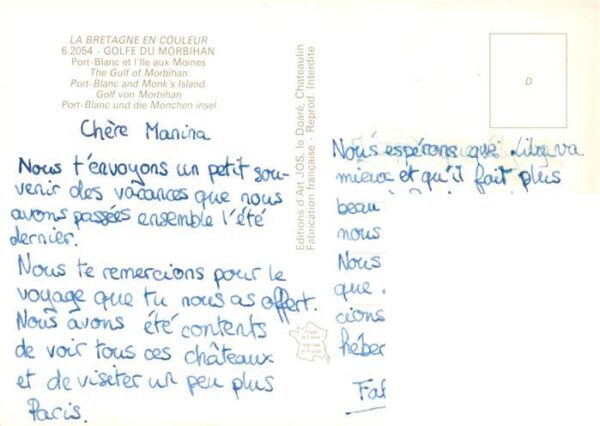 LA BRETAGNE EN COULEUR
6.2054 - GOLFE DU MORBIHAN
Port-Blanc et l'Ile aux Moines
The Gulf of Morbihan
Port-Blanc and Monk's Island.
Golf von Morbihan
Port-Blanc und die Mönchen insel
Chère Manina
Nous t'envoyons un petit sou-
venir des vacances que nous
avons passées ensemble l'été
dernier.
Nous te remercions pour le
voyage que tu nous as offert.
Nous avons été contents
de voir tous ces châteaux
et de visiter un peu plus
Paris.
Editions d'Art JOS, le Doaré, Chateaulin
Fabrication française - Reprod. Interdite
D
Nous espérons que va
mieux et qu'il fait plus
beau
nous
Nous
que
cions
héber